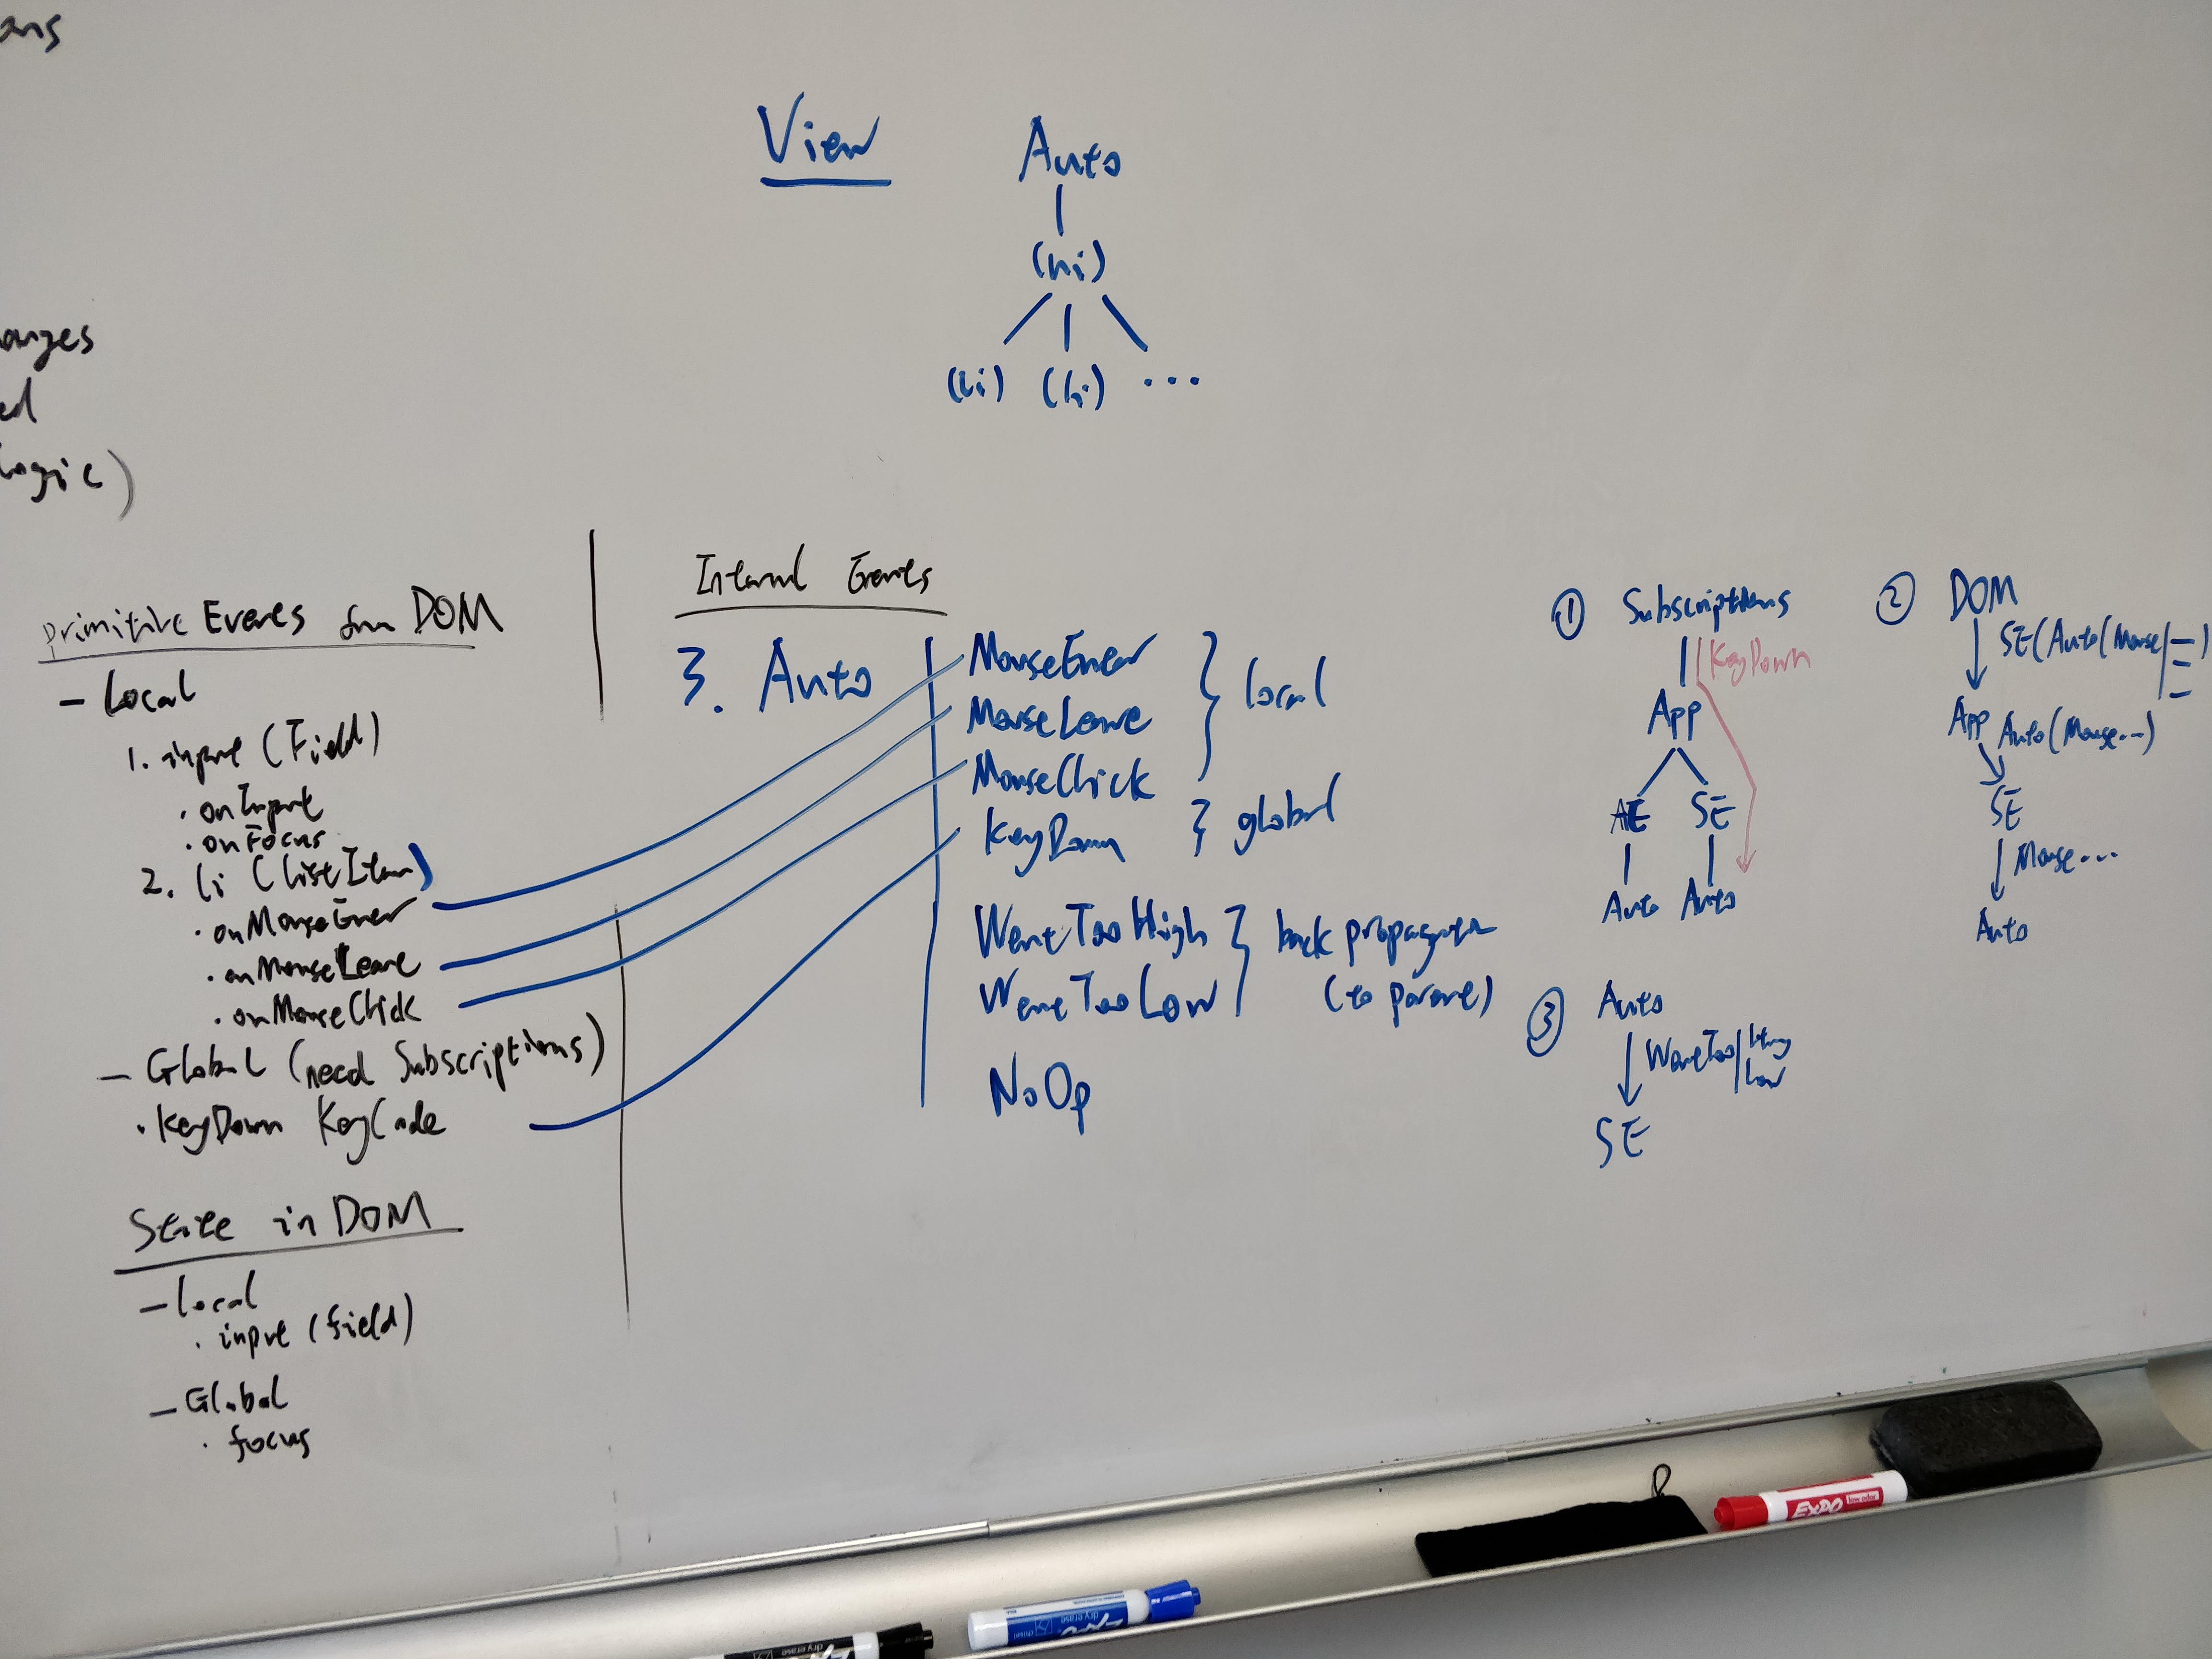 ons
anges
ed
Logic)
View
Auto
(ni)
(li) (li) ...
Primitive Events from DOM
- Local
1. input (Field)
• onInput
• onFocus
2. li (ListItem)
• onMouseEnter
• onMouseLeave
• onMouseClick
- Global (need Subscriptions)
• KeyDown KeyCode
State in DOM
- Local
• input (field)
- Global
• focus
Internal Events
3. Auto
MouseEnter
MouseLeave
MouseClick
} local
KeyDown } global
WentTooHigh
WentTooLow
} back propagate
(to parent)
NoOp
① Subscriptions
KeyDown
App
AE SE
Auto Auto
② DOM
SE(Auto(Mouse
App Auto(Mouse...)
SE
Mouse...
Auto
③ Auto
WentToo
Low
SE
EXPO
low odor
dry erase
chisel
dry erase